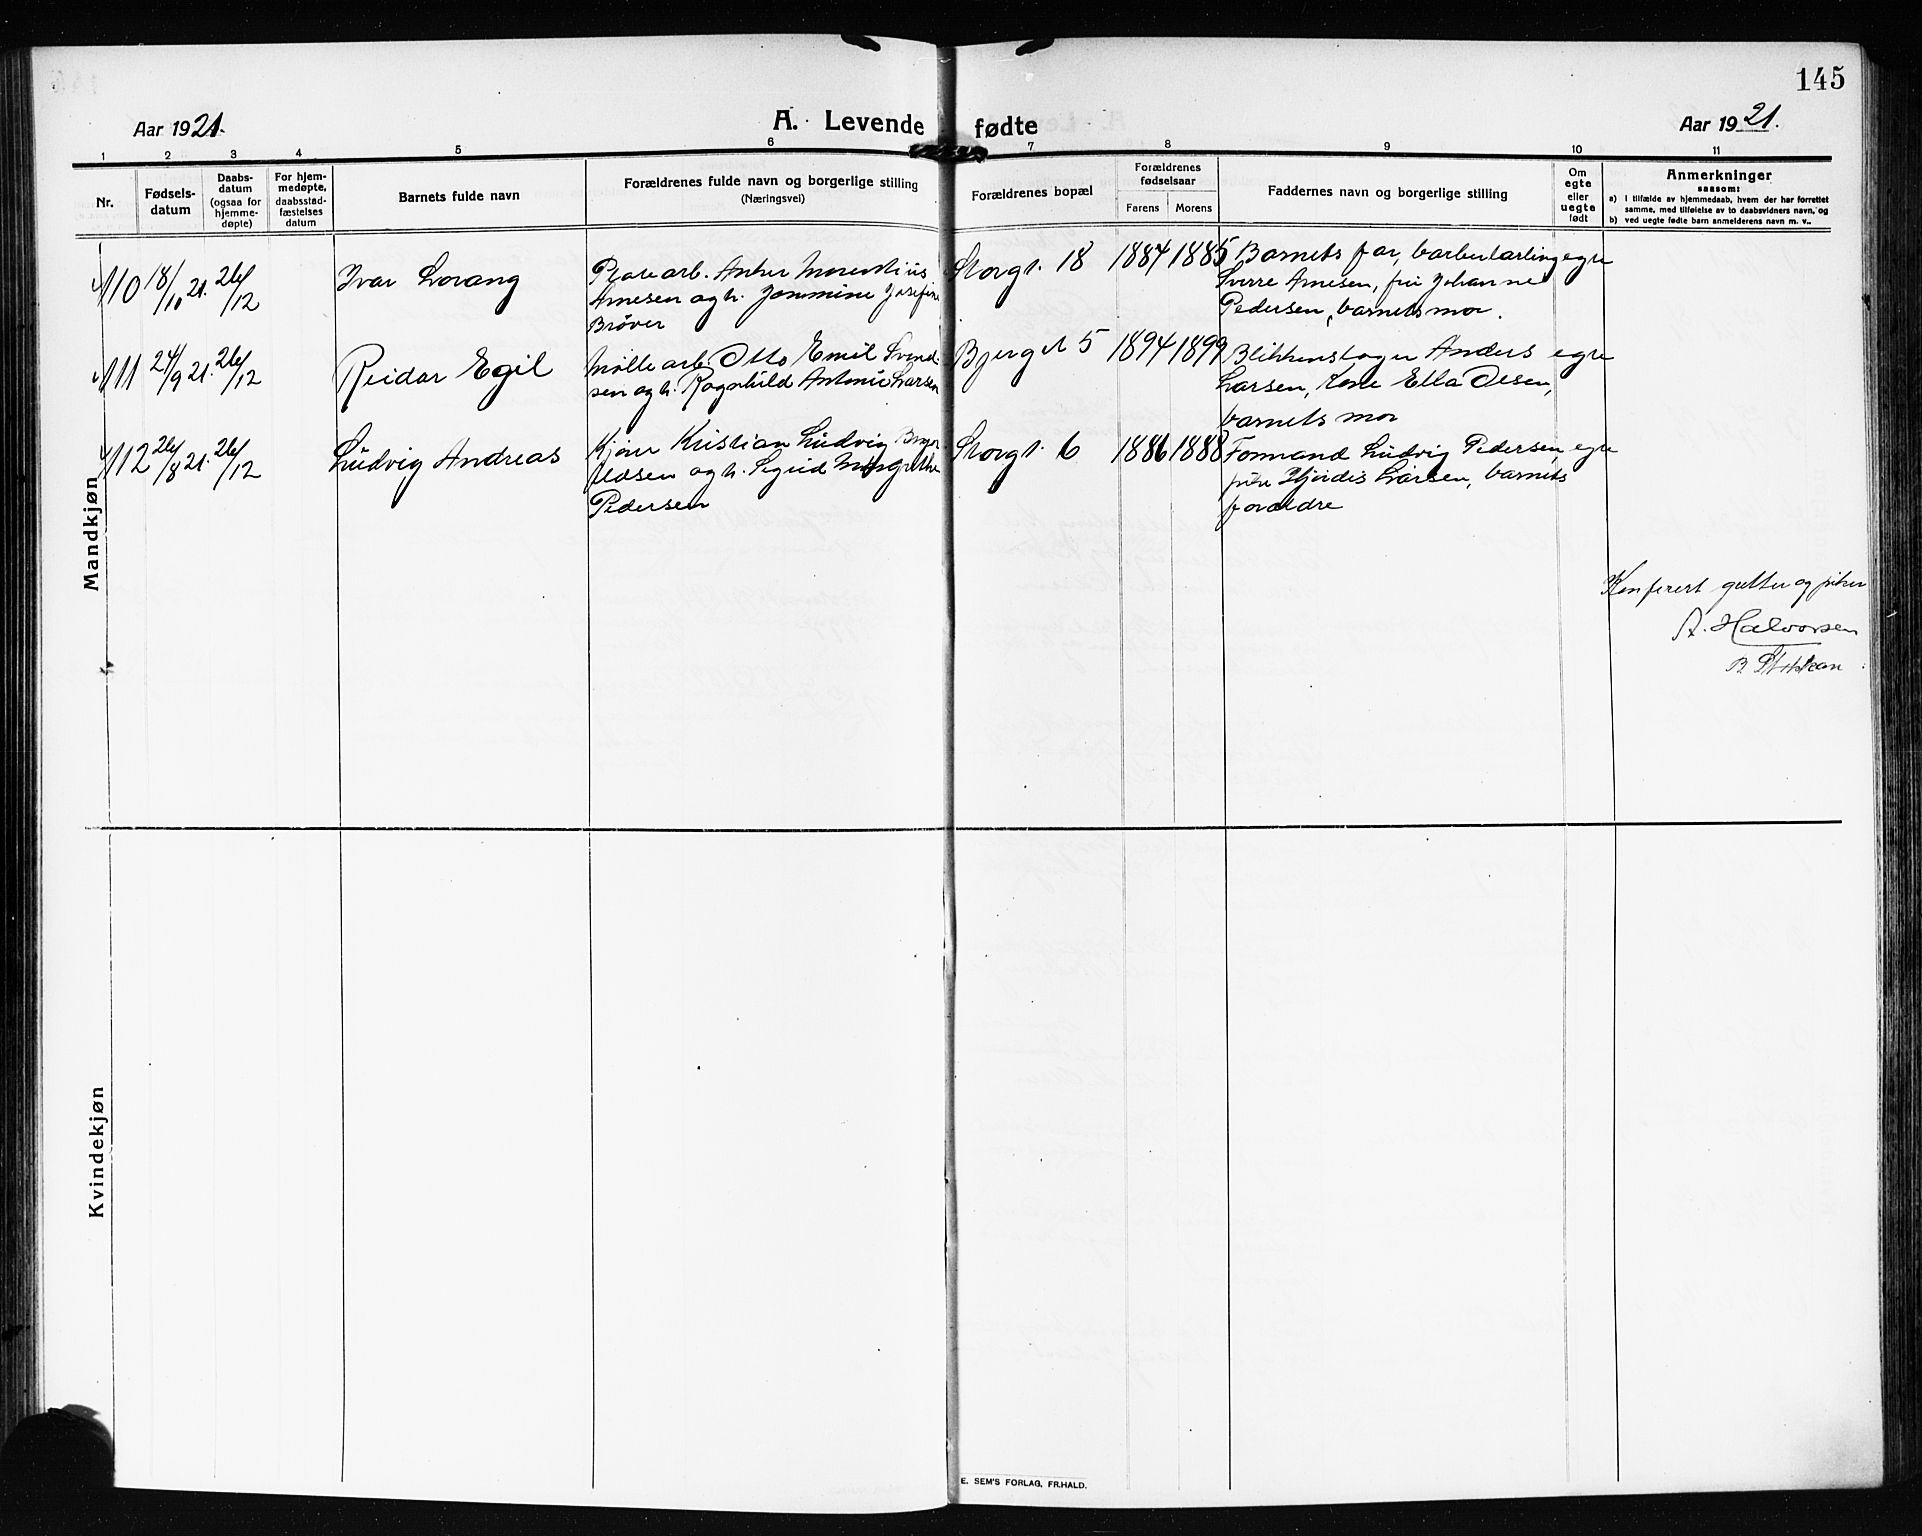 145
Aar 1921.
A. Levende fødte
Aar 1921.
1 2 3 4 5 6 7 8 9 10 11
Nr.
Fødsels-
datum
Daabs-
datum
(ogsaa for
hjemme-
døpte)
For hjem-
medøpte,
daabsstad-
fæstelses
datum
Barnets fulde navn
Forældrenes fulde navn og borgerlige stilling
(Næringsvei)
Forældrenes bopæl
Forældrenes
fødselsaar
Farens Morens
Faddernes navn og borgerlige stilling
Om
egte
eller
uegte
født
Anmerkninger
saasom:
a) I tilfælde av hjemmedaab, hvem der har forrettet
samme, med tilføielse av to daabsvidners navn, og
b) ved uegte fødte barn anmelderens navn m. v..
Mandkjøn
110 18/10 21. 26/12 Ivar Lorang
arb. Anker
Arnesen og h. Josefine
Brøver
Storgt. 18 1884 1885
Barnets far, barberlærling
Sverre Arnesen, frk Johanne
Pedersen, barnets mor.
egte
111 24/9 21. 26/12 Reidar Egil
Møllearb. Otto Emil Svend-
sen og h. Ragnhild Antonie Larsen
Bjergt 5 1894 1899
Blikkenslager Anders
Larsen, Kone Ella Olsen,
barnets mor
egte
112 26/8 21. 26/12 Ludvig Andreas
Kjører Kristian Ludvig
og h. Sigrid Margrethe
Pedersen
Storgt. 6 1886 1888
Formand Ludvig Pedersen,
Hjørdis Larsen, barnets
forældre
egte
Konferert gutter og piker
A. Halvorsen
B.
Kvindekjøn
E. SEM'S FORLAG, FR.HALD.